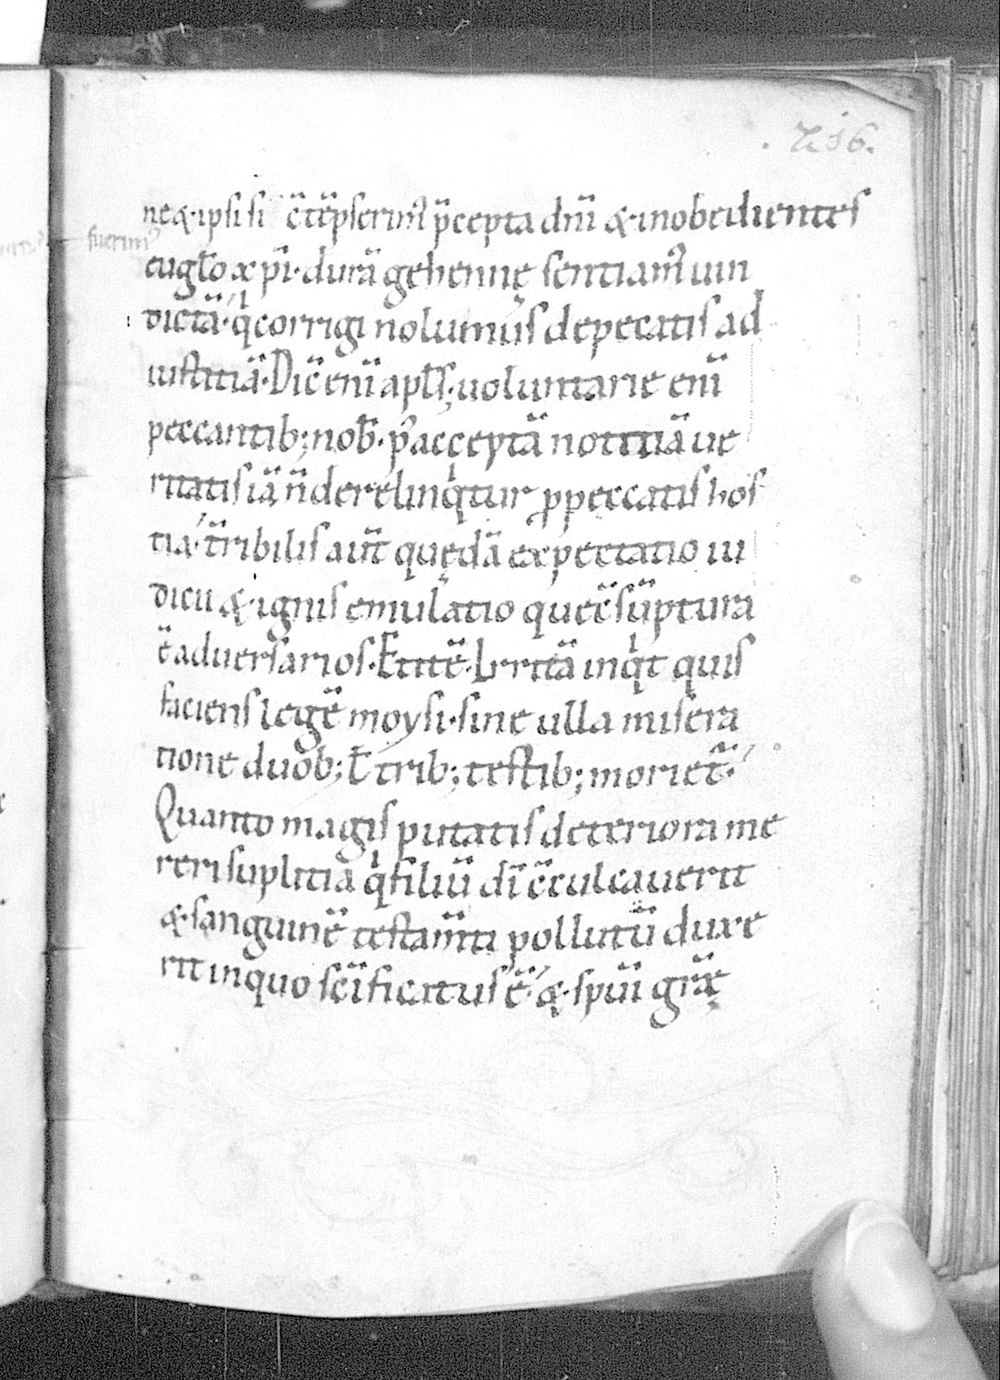 . 216.
ne &·ipsi si c̄tēpserim᷒ p̄cepta dn̄i &·inobedientes
fuerim᷒
eugl̄o x p̄i·durā gehenne sentiam᷒ uin
dictā·qͥ corrigi nolumus depecatis ad
iustitiā·Dic̄ enī apl̄s;uoluntarie enī
peccantib;nob̄·p᷒ acceptā notitiā ue
ritatis iā n̄ derelinqͥtur ꝓpeccatis hos
tia·t̄ribilis aut̄ quędā expectatio iu
dicii &·ignis emulatio quec̄sūptura
ē aduersarios·Etitē·Irritā inqͥt quis
faciens legē moysi·sine ulla misera
tione duob;t̄ trib;testib;moriet̄·
Quanto magis putatis deteriora me
reri suplitia qͥ filiū dī c̄culcauerit
&·sanguinē testam̄ti pollutū duxe
rit inquo sc̄ificatus ē &·spūi grāę